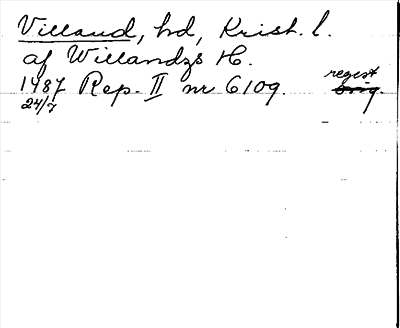 Villand, hd, Krist. l.
af Willandzs H.
regist
1487 Rep. II nr 6109. orig.
24/7